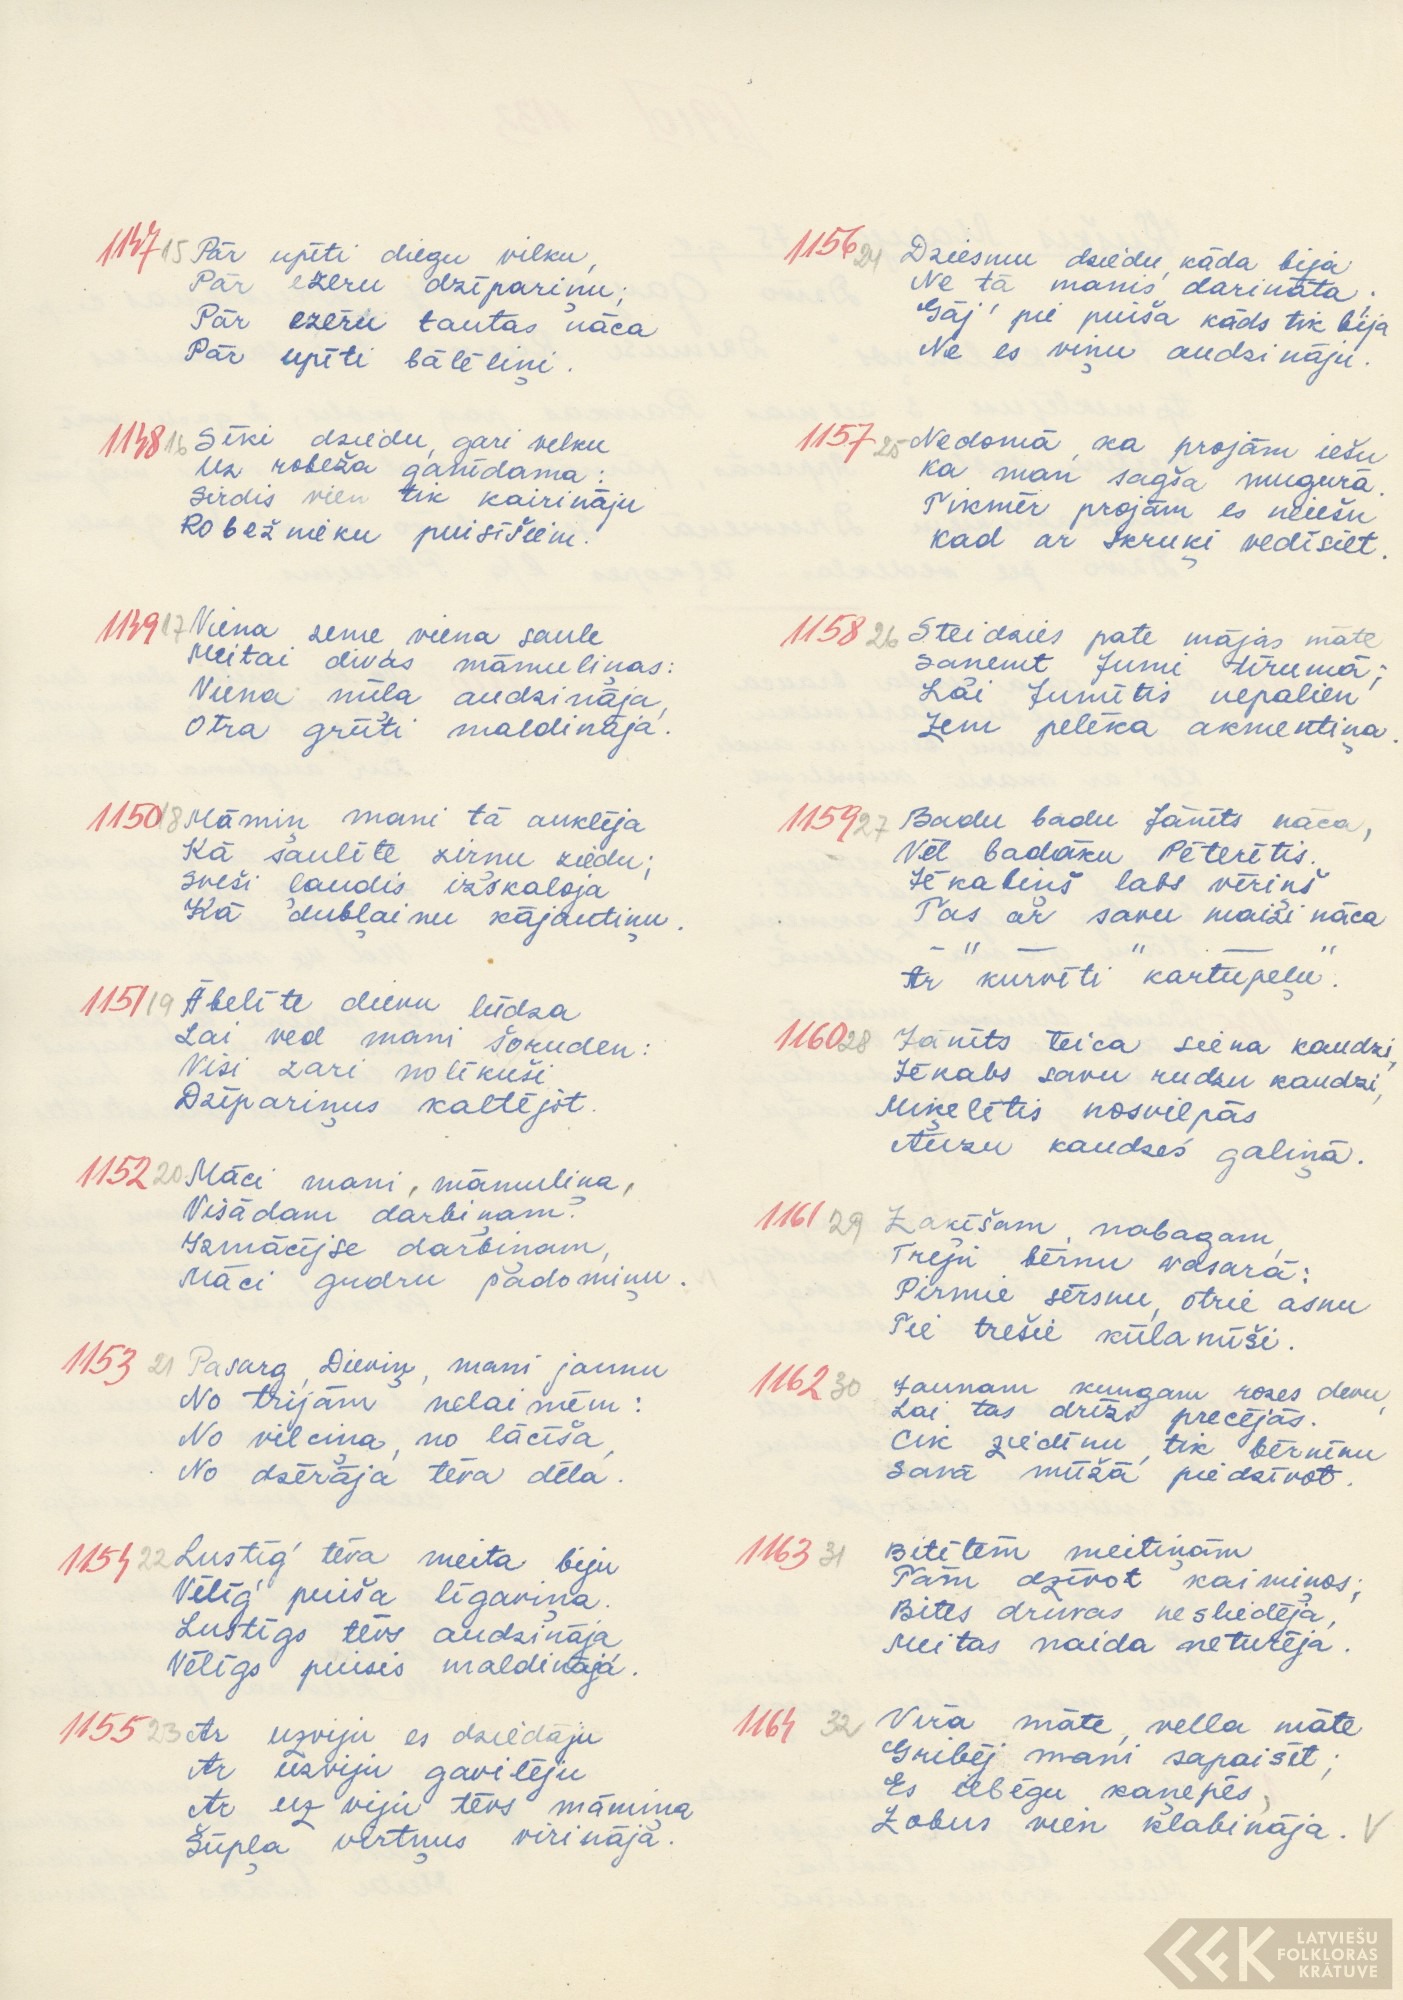 1147 15 Pār upīti diegu vilku,
Pār ezeru dzīpariņu;
Pār ezeru tautas nāca
Pār upīti bālēliņi.
1148 16 Sīki dziedu, gari velku
Uz robeža ganīdama:
Sirdis vien tik kairināju
Robežnieku puisīšiem.
1149 17 Viena zeme viena saule
Meitai divas māmuliņas:
Viena mīļa audzināja,
Otra grūti maldināja.
1150 18 Māmiņ mani tā auklēja
Kā saulīte zirņu ziedu;
Sveši ļaudis izskaloja
Kā dubļainu kājautiņu.
1151 19 Ābelīte dievu lūdza
Lai ved mani šoruden:
Visi zari nolīkuši
Dzīpariņus kaltējot.
1152 20 Māci mani, māmuliņa,
Visādam darbiņam.
Izmācījse darbiņam,
Māci gudru padomiņu.
1153 21 Pasarg, Dieviņ, mani jaunu
No trijām nelaimēm:
No vilciņa, no lācīša,
No dzērāja tēva dēla.
1154 22 Lustīg' tēva meita biju
Vēlīg' puiša līgaviņa.
Lustīgs tēvs audzināja
Vēlīgs puisis maldināja.
1155 23 Ar uzviju es dziedāju
Ar uzviju gavilēju
Ar uzviju tēvs māmiņa
Šūpļa virtņus virināja.
1156 24 Dziesmu dziedu, kāda bija
Ne tā manis darināta;
Gāj' pie puiša kāds tik bija
Ne es viņu audzināju.
1157 25 Nedomā, ka projām iešu
Ka man sagša mugurā.
Tikmēr projām es neiešu
Kad ar skruķi vedīsiet.
1158 26 Steidzies pate mājas māte
Saņemt Jumi tīrumā;
Lai Jumītis nepalien
Zem pelēka akmentiņa.
1159 27 Badu badu Jānīts nāca,
Vēl badāku Pēterītis.
Jēkabiņš labs vēriņš
Tas ar savu maizi nāca
— " — " — "
Ar "kurvīti" "kartupeļu".
1160 28 Jānīts teica siena kaudzi,
Jēkabs savu rudzu kaudzi,
Miķelītis nosvilpās
Auzu kaudzes galiņā.
1161 29 Zaķīšam, nabagam,
Treji bērnu vasarā:
Pirmie sērsnu, otrie asnu
Tie trešie kūlanīši.
1162 30 Jaunam kungam rozes devu,
Lai tas drīzi precējās.
Cik ziedīņu, tik bērnīņu
Savā mūžā piedzīvot.
1163 31 Bitītēm meitiņām
Tām dzīvot kaimiņos;
Bites druvas nesliedēja,
Meitas naida neturēja.
1164 32 Vīra māte, vella māte
Gribēj mani sapaisīt;
Es iebēgu kaņepēs,
Zobus vien klabināja. V
LATVIEŠU
FOLKLORAS
KRĀTUVE